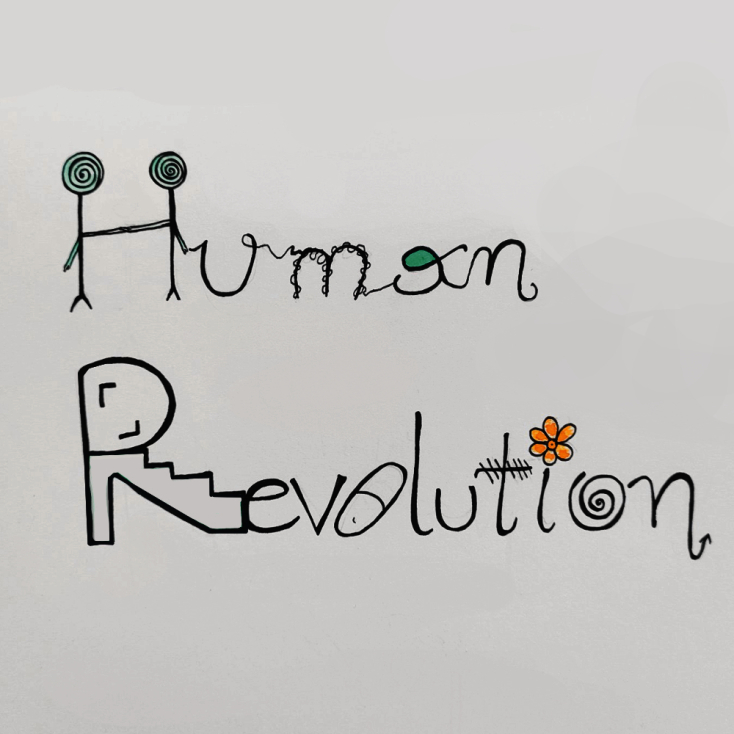 Human
Revolution